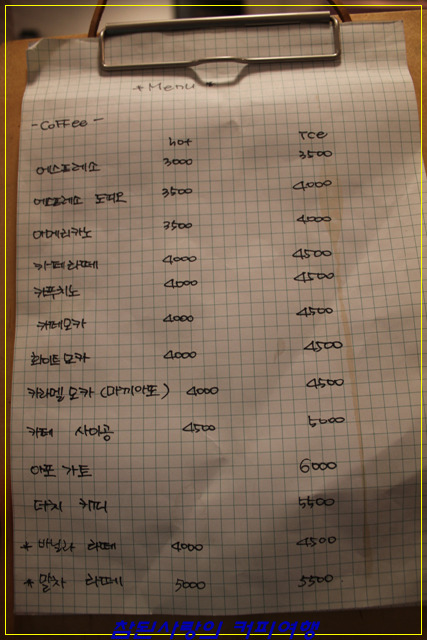 * Menu *
- Coffee -
hot Ice
에스프레소 3000 3500
에스프레소 도피오 3500 4000
아메리카노 3500 4000
카페라떼 4000 4500
카푸치노 4000 4500
카페모카 4000 4500
화이트모카 4000 4500
카라멜모카 (마끼아또) 4000 4500
카페 사이공 4500 5000
아포가토 6000
더치 커피 5500
* 바닐라 라떼 4000 4500
* 말차 라떼 5000 5500
참된사랑의 커피여행